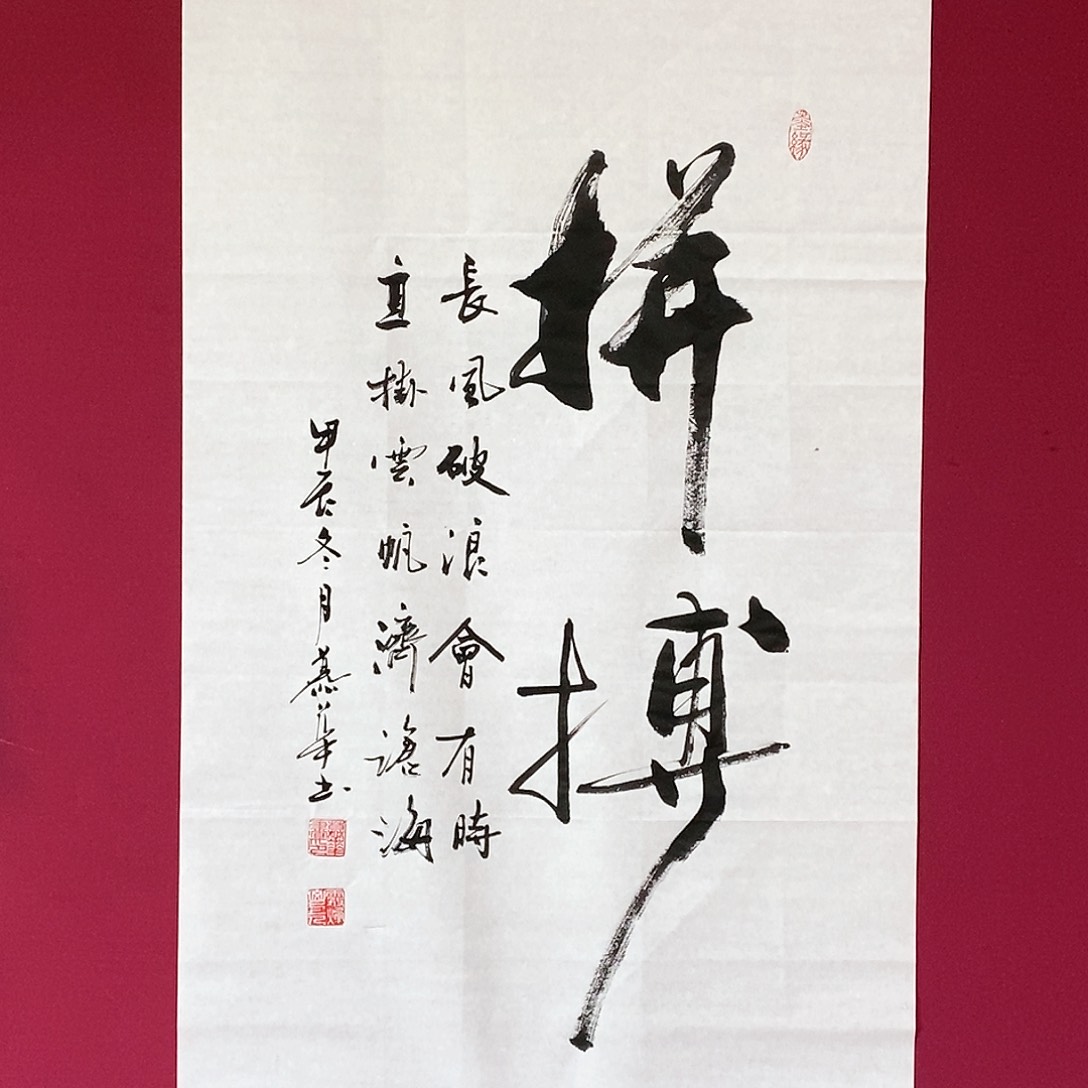 拼搏
長風破浪會有時
直掛雲帆濟滄海
甲辰冬月慕華书
墨緣